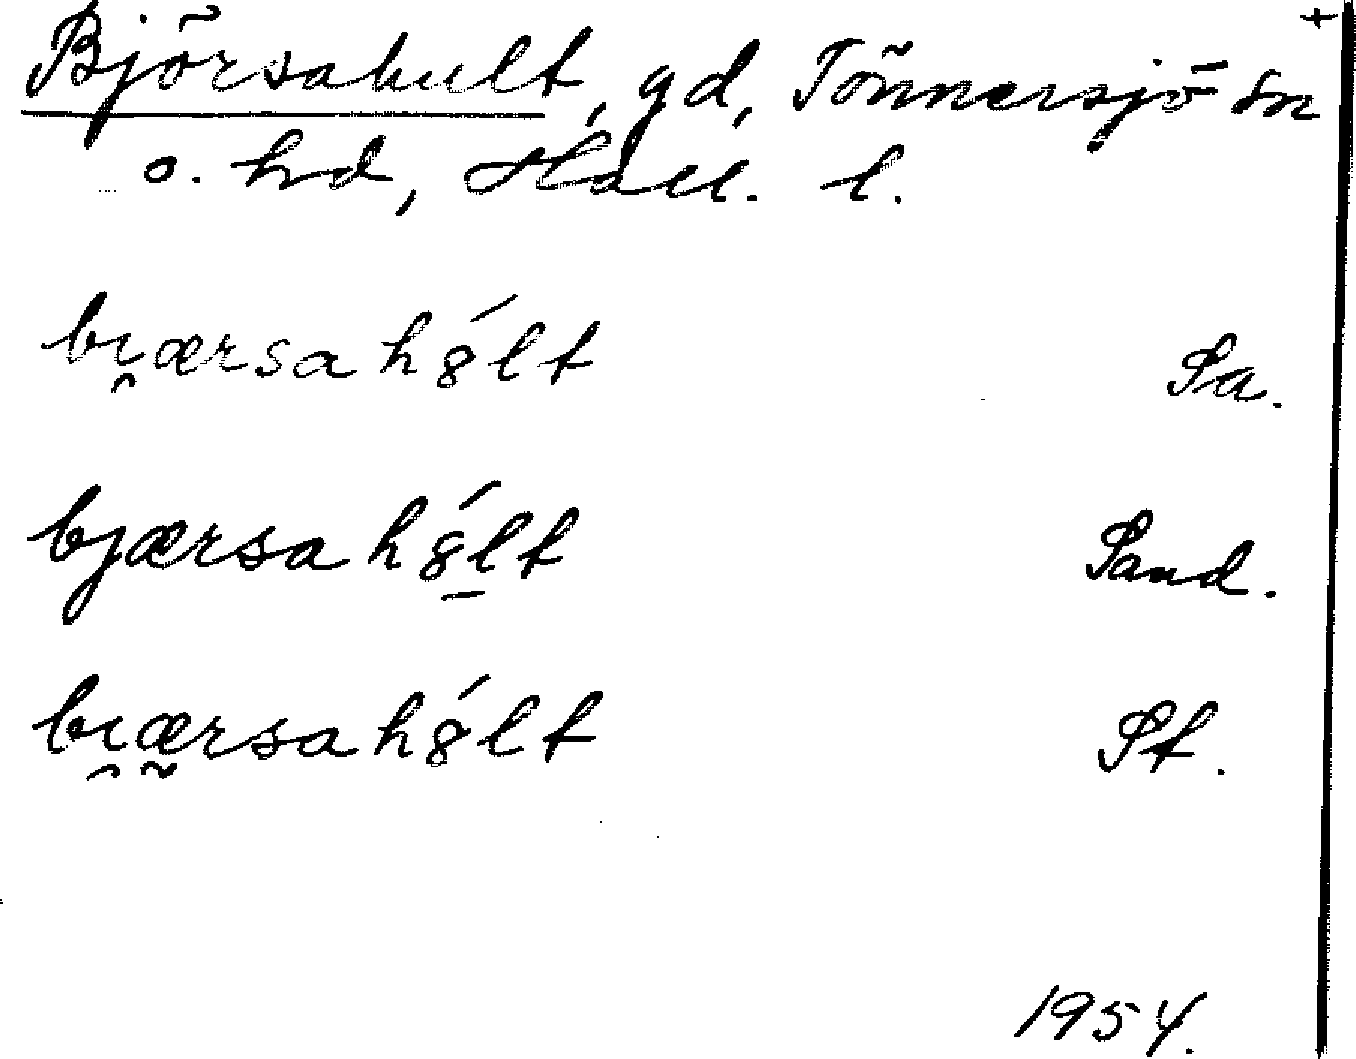 +
Björsahult, gd, Tönnersjö sn
o. hd, Hall. l.
bı̯ærsahȣ́lt Sa.
bjærsahȣ́l̠t Sand.
bı̯æ̰rsahȣ́lt St.
1954.